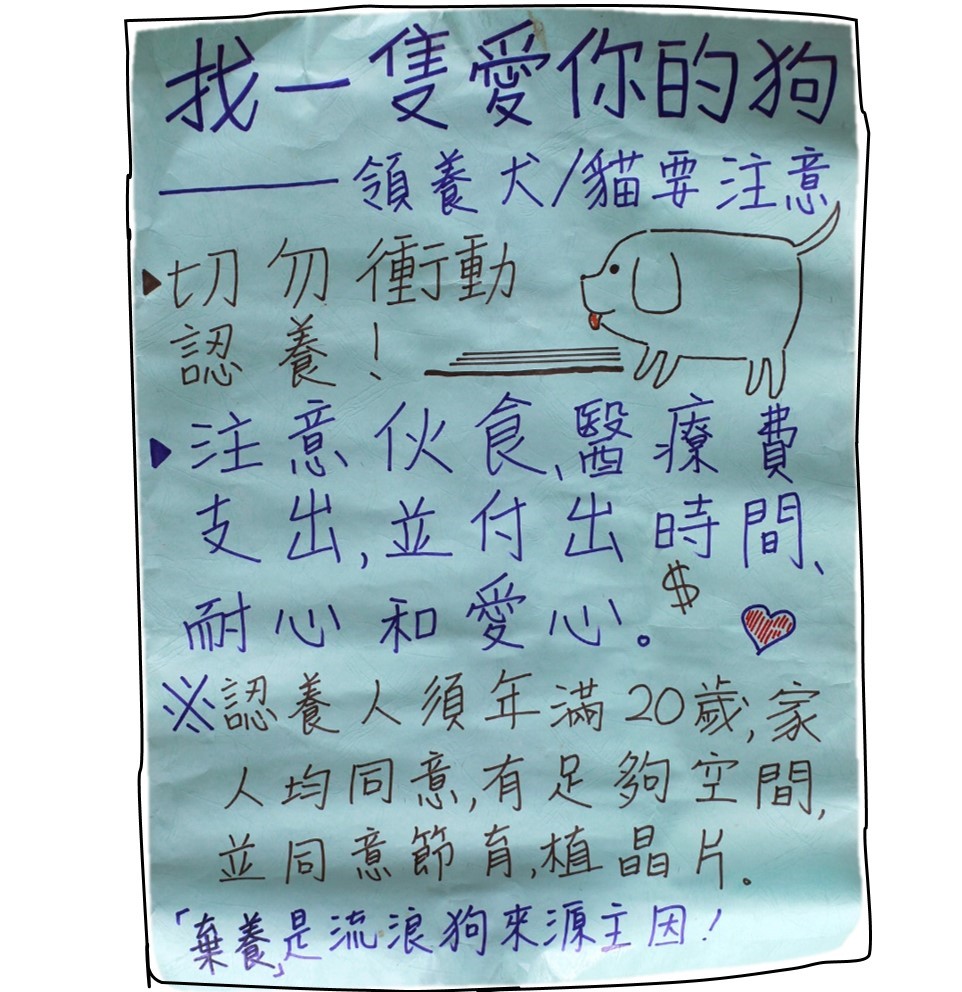 找一隻愛你的狗
——領養犬/貓要注意
▶切勿衝動
認養!
▶注意伙食、醫療費
支出,並付出時間、
耐心和愛心。
$
※認養人須年滿20歲,家
人均同意,有足夠空間,
並同意節育,植晶片。
「棄養」是流浪狗來源主因!